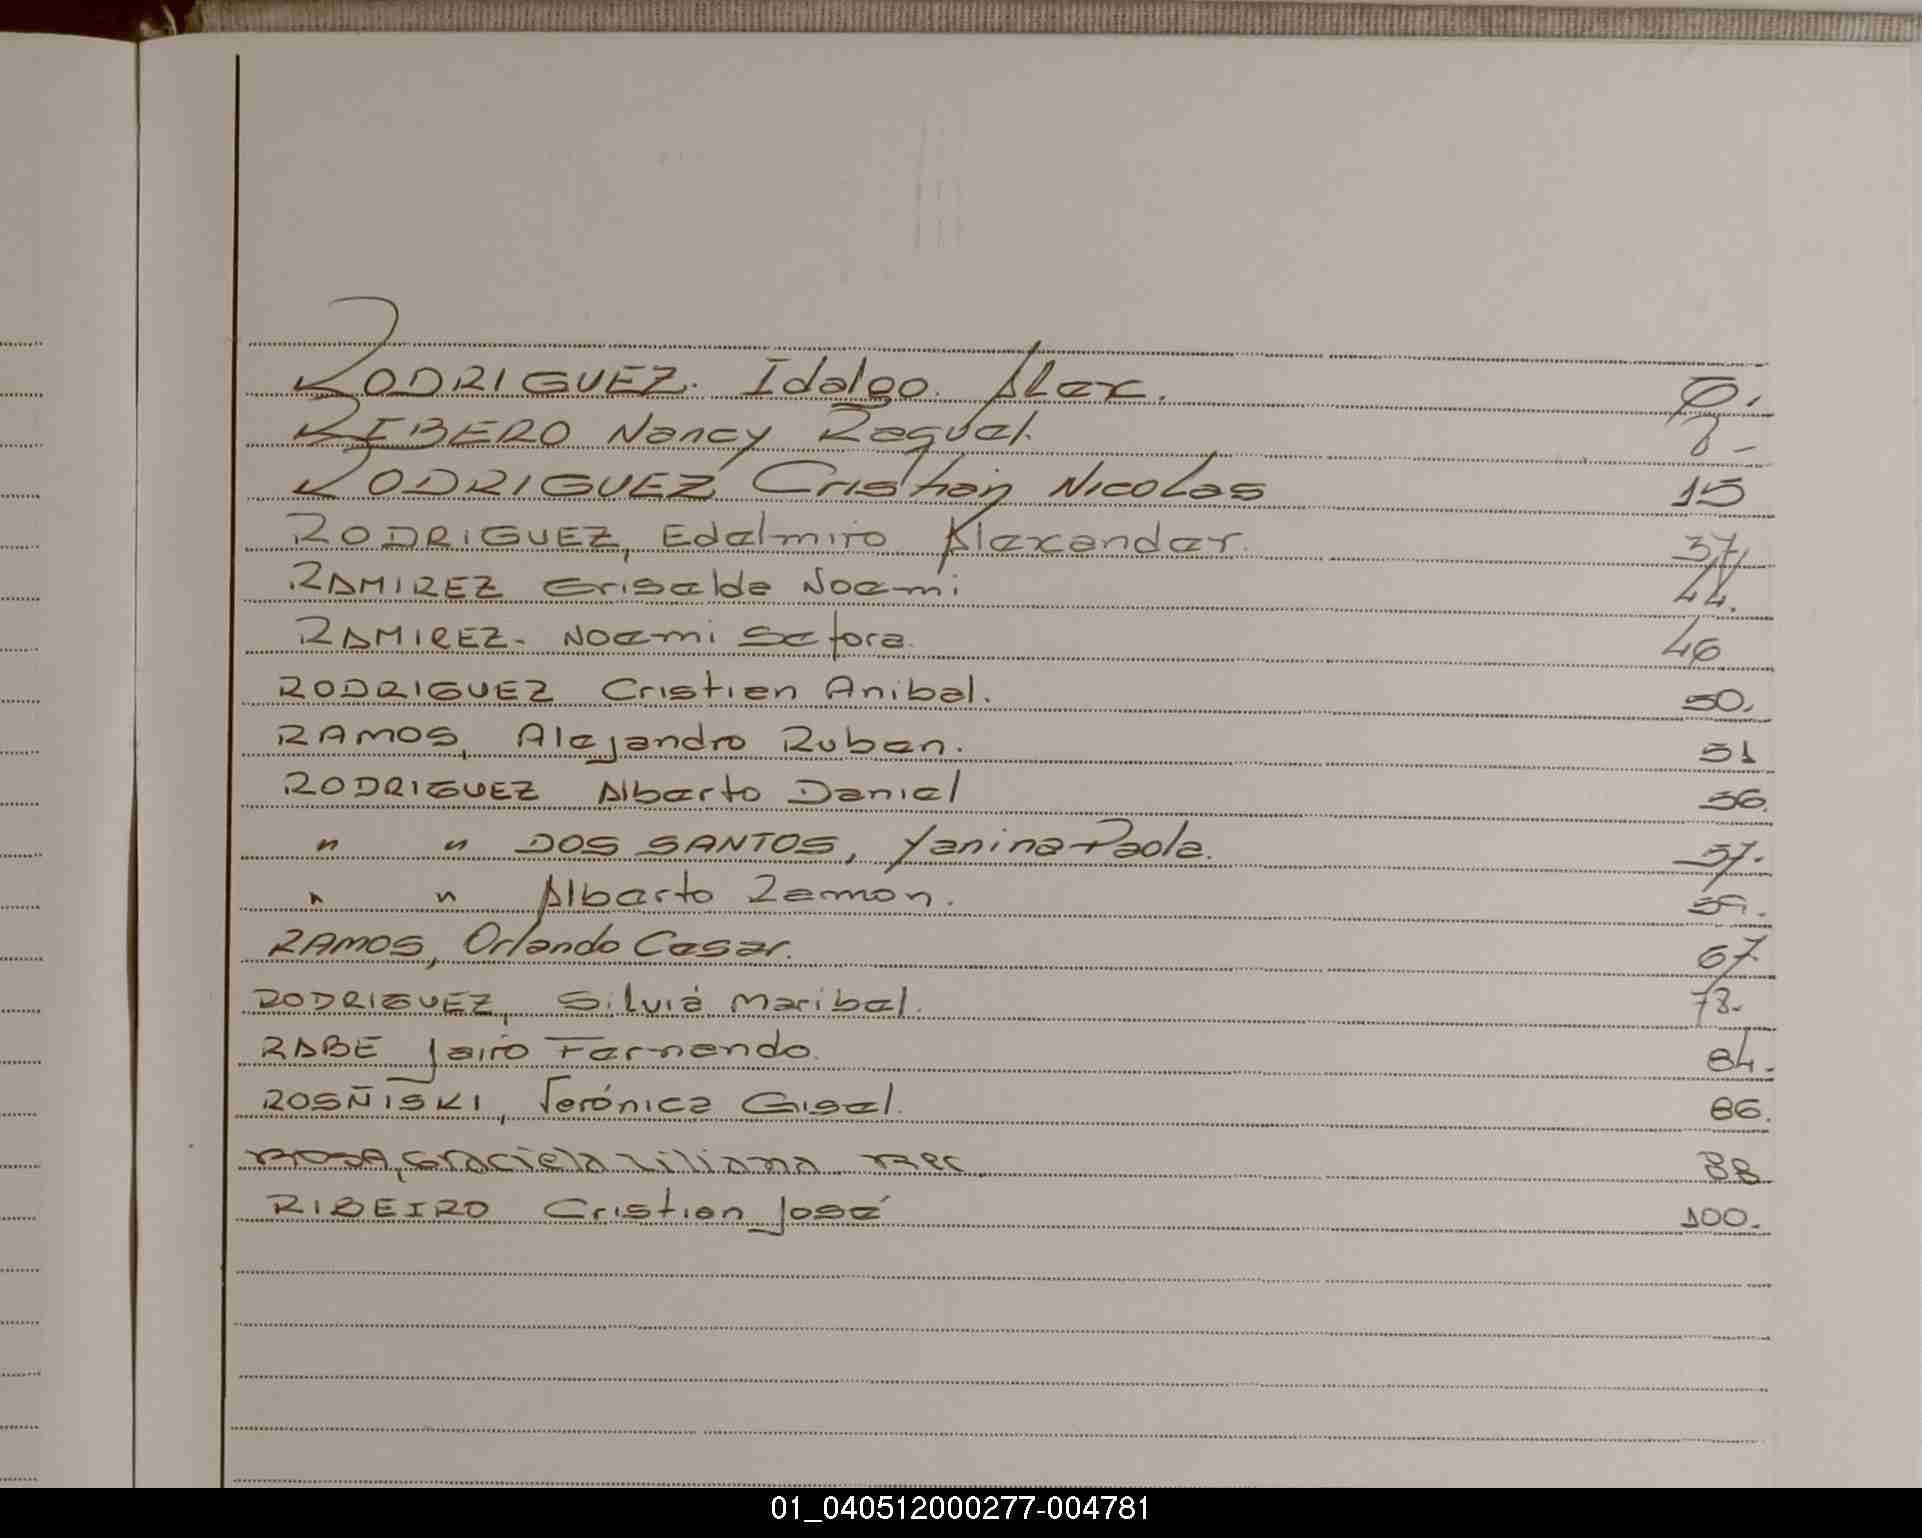 RODRIGUEZ. Idalgo. Alex.
RIBERO Nancy Raquel. 8-
RODRIGUEZ Cristian Nicolas 15
RODRIGUEZ, Edelmiro Alexander. 37
RAMIREZ Griselda Noemi 44.
RAMIREZ. Noemi Sefora. 46
RODRIGUEZ Cristian Anibal. 50.
RAMOS, Alejandro Ruben. 51
RODRIGUEZ Alberto Daniel 56.
" " DOS SANTOS, Yanina Paola. 57.
" " Alberto Ramon. 59.
RAMOS, Orlando Cesar. 67
RODRIGUEZ, Silvia Maribel. 78.
RABE Jairo Fernando. 84.
ROSÑISKI, Verónica Gisel. 86.
ROSA, Graciela Liliana Rec. 88
RIBEIRO Cristian José 100.
01_040512000277-004781